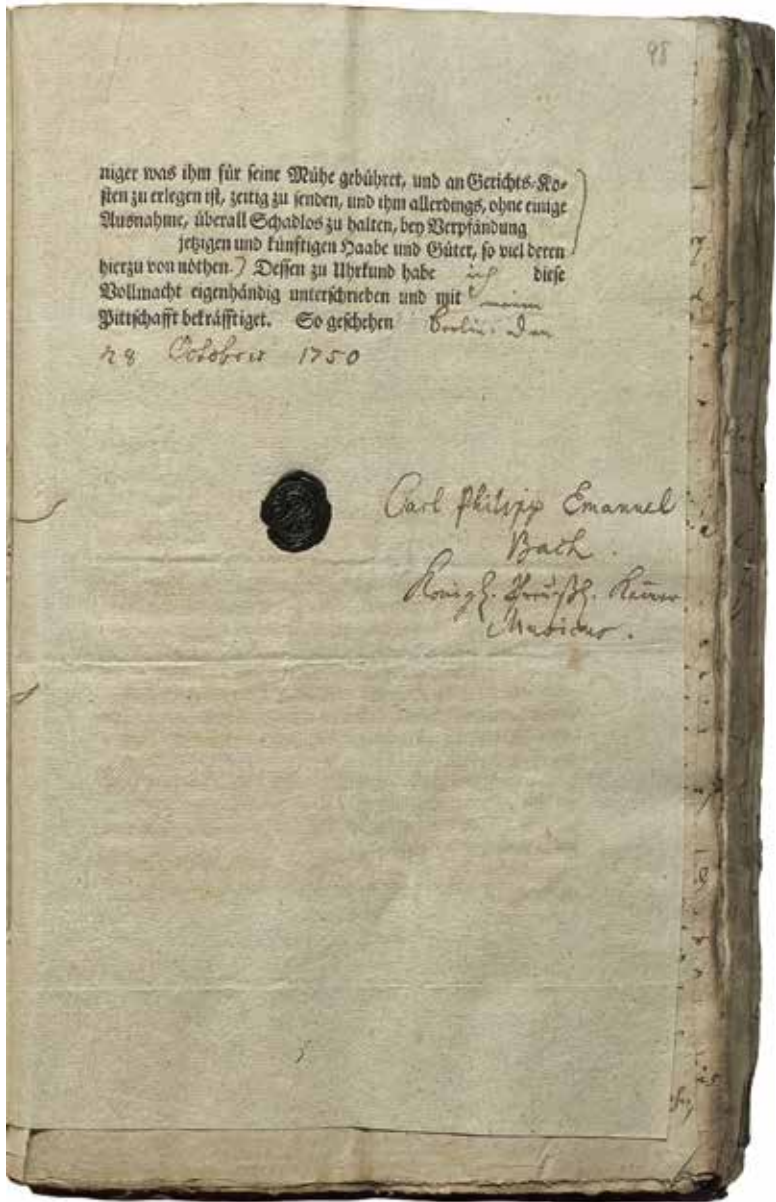 98
niger was ihm für seine Mühe gebühret, und an Gerichts-Ko-
sten zu erlegen ist, zeitig zu senden, und ihm allerdings, ohne einige
Ausnahme, überall Schadlos zu halten, bey Verpfändung
jetzigen und künftigen Haabe und Güter, so viel deren
hierzu von nöthen.) Dessen zu Uhrkund habe ich diese
Vollmacht eigenhändig unterschrieben und mit meinem
Pittschafft bekräfftiget. So geschehen Berlin. den
28 Octobris 1750
Carl Philipp Emanuel
Bach.
Königl. Preußl.
Musicus.